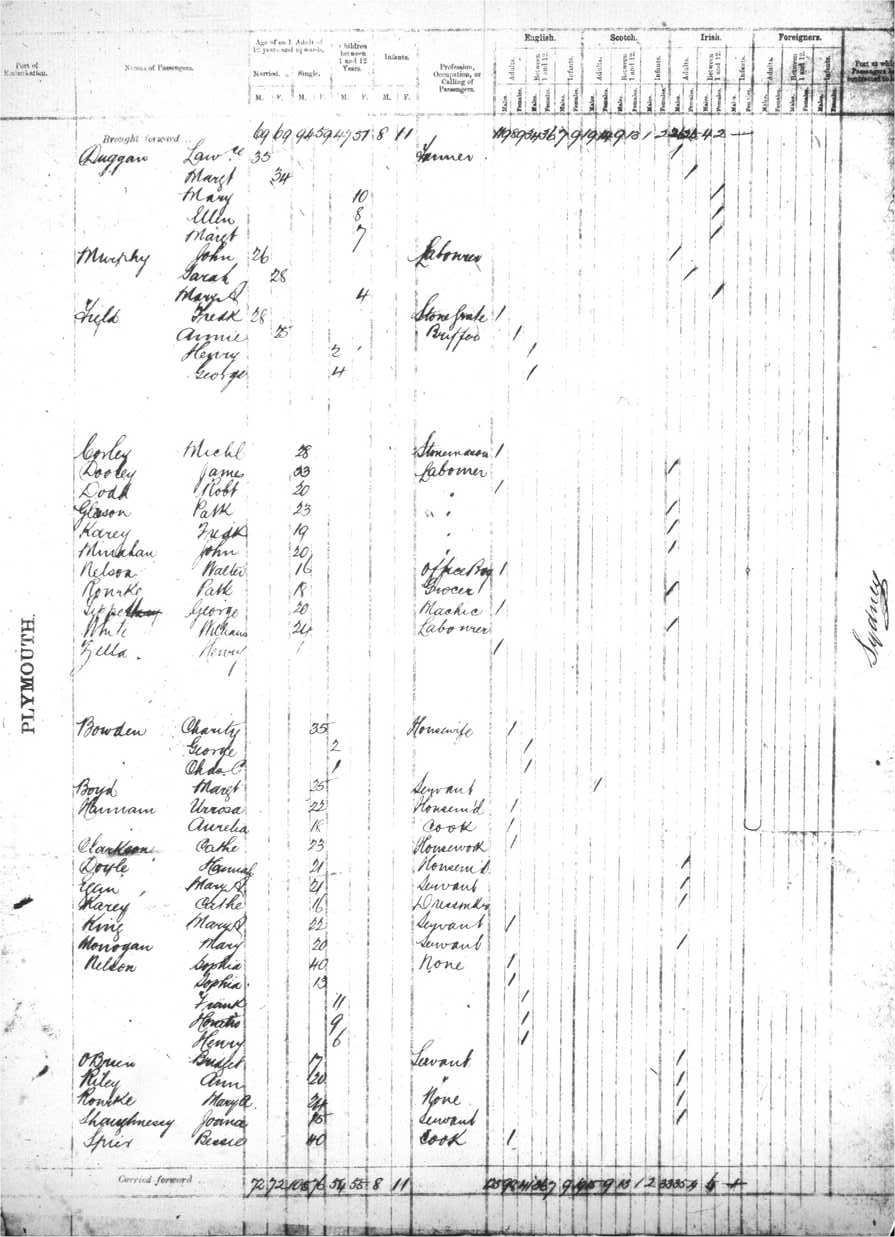 Port of Embarkation.
Names of Passengers.
Age of each Adult of 12 years and upwards.
Married. Single.
M. F. M. F.
Children between 1 and 12 Years.
M. F.
Infants.
M. F.
Profession, Occupation, or Calling of Passengers.
English. Scotch. Irish. Foreigners.
Adults. Between 1 and 12. Infants. Adults. Between 1 and 12. Infants. Adults. Between 1 and 12. Infants. Adults. Between 1 and 12. Infants.
Males. Females. Males. Females. Males. Females. Males. Females. Males. Females. Males. Females. Males. Females. Males. Females. Males. Females. Males. Females. Males. Females. Males. Females.
Brought forward 69 69 94 59 47 51 8 11
Duggan Lawce 35 Farmer /
Margt 34 /
Mary 10 /
Ellen 8 /
Margt 7 /
Murphy John 26 Labourer /
Sarah 28 /
Mary A 4 /
Field Fredk 28 /
Annie 25 /
Henry 2 /
George 4 /
Corley Michl 28 Stonemason /
Dooley James 23 Labourer /
Dodd Robt 20 " /
Gleeson Patk 23 " /
Karey Fredk 19 " /
Minahan John 20 " /
Nelson Walter 16 Office Boy /
Rourke Patk 18 Grocer /
George 20 /
White 24 Labourer /
Zella Henry /
PLYMOUTH.
Sydney
Bowden Charity 35 Housewife /
George 2 /
Chas. C 1 /
Boyd Margt 35 Servant /
Hannam 22 Housem'd /
Aurelia 18 Cook /
Clarkson Cathe 23 Housework /
Doyle Hannah 21 Housem'd /
Mary A 21 Servant /
Karey Cathe 16 /
King Mary A 22 Servant /
Monogan Mary 20 Servant /
Nelson Sophia 40 None /
Sophia 13 /
Frank 11 /
Horatio 9 /
Henry 6 /
O'Brien Bridget 17 Servant /
Riley Ann 20 " /
Rourke Mary A 24 None /
Shaughnessy Joana Servant /
Spier Bessie 40 Cook /
Carried forward 72 72 105 76 54 55 8 11